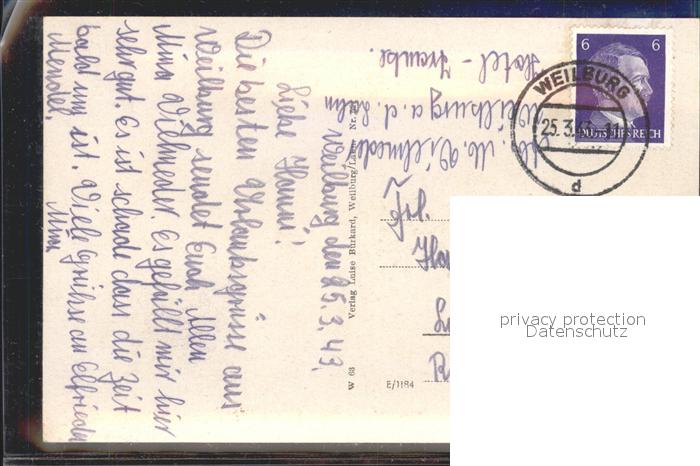 Weilburg den 25.3.43.
Liebe Hanni!
Die besten Urlaubsgrüsse aus
Weilburg sendet Euch Allen
Mina Villmeder. Es gefällt mir hier
sehr gut. Es ist schade dass die Zeit
bald um ist. Viele Grüsse an Elfriede
Mendel.
Mina
W 63
Verlag Luise Burkard, Weilburg/Lahn
E/1184
Weilburg a. d. Lahn
Hotel-
6 6
DEUTSCHES REICH
WEILBURG
25.3.43
d
privacy protection
Datenschutz